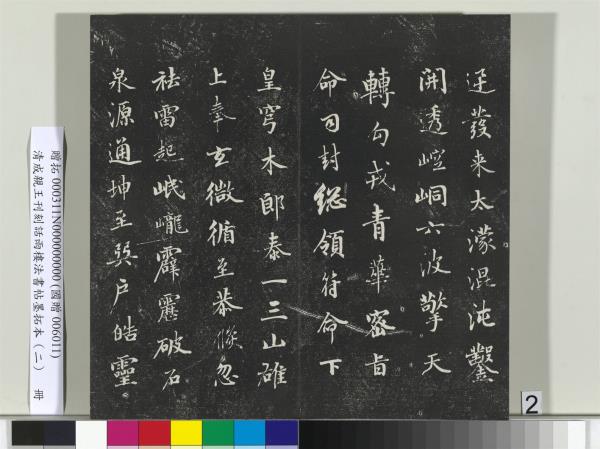 迋發来太濛混沌鑿
開透崆峒六波擎天
轉勾戎青華密旨
命司封總領符命下
皇穹木郎泰一三山雄
上奉玄微循至恭倏忽
祛雷起岷巃霹靂破石
泉源通坤至巽戶皓靈
贈拓 000311N000000000 (國贈 006011)
清成親王刊刻詒雨樓法書帖墨拓本（二） 冊
2